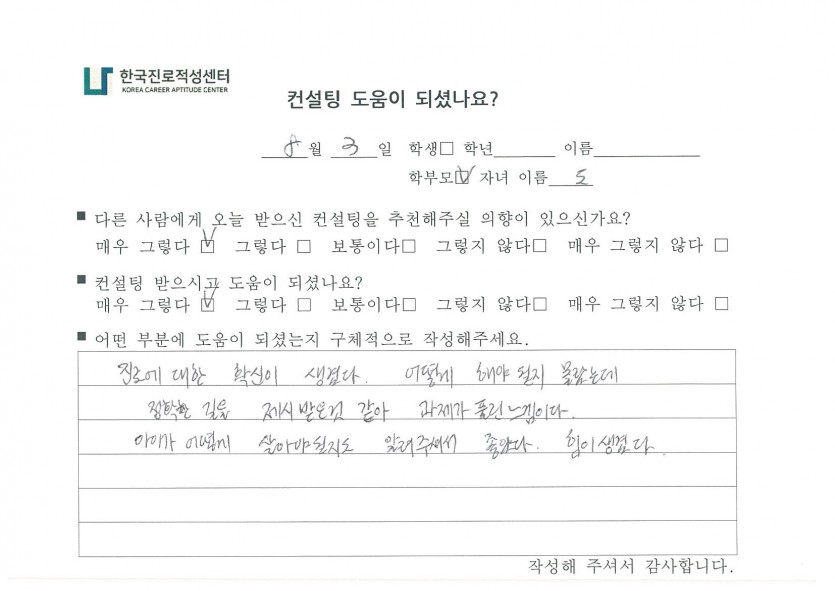 한국진로적성센터
KOREA CAREER APTITUDE CENTER
컨설팅 도움이 되셨나요?
8월 3일 학생□ 학년______ 이름__________
학부모☑ 자녀 이름 도
■ 다른 사람에게 오늘 받으신 컨설팅을 추천해주실 의향이 있으신가요?
매우 그렇다 ☑ 그렇다 □ 보통이다□ 그렇지 않다□ 매우 그렇지 않다 □
■ 컨설팅 받으시고 도움이 되셨나요?
매우 그렇다 ☑ 그렇다 □ 보통이다□ 그렇지 않다□ 매우 그렇지 않다 □
■ 어떤 부분에 도움이 되셨는지 구체적으로 작성해주세요.
진로에 대한 확신이 생겼다. 어떻게 해야 될지 몰랐는데
정확한 길을 제시 받은것 같아 과제가 풀린 느낌이다.
아이가 어떻게 살아야 될지도 알려주셔서 좋았다. 힘이 생겼다.
작성해 주셔서 감사합니다.